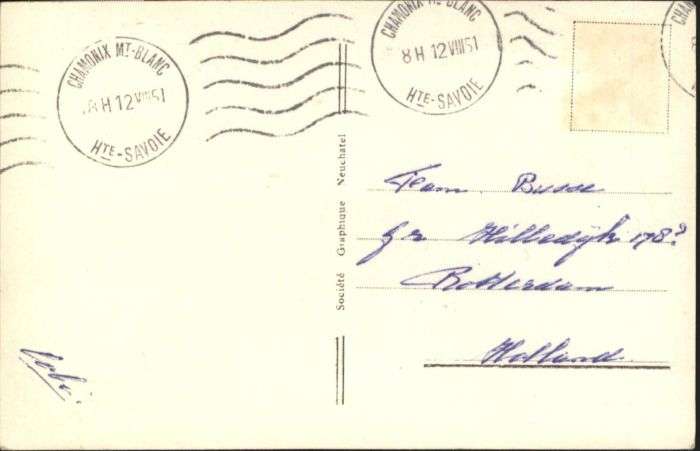 CHAMONIX MT-BLANC
8H 12 VIII 51
HTE-SAVOIE
CHAMONIX MT BLANC
8H 12 VIII 51
HTE-SAVOIE
CHAMO
Société Graphique Neuchatel
Fam. Busse
Gr. Hilledijk 178
Rotterdam
Holland